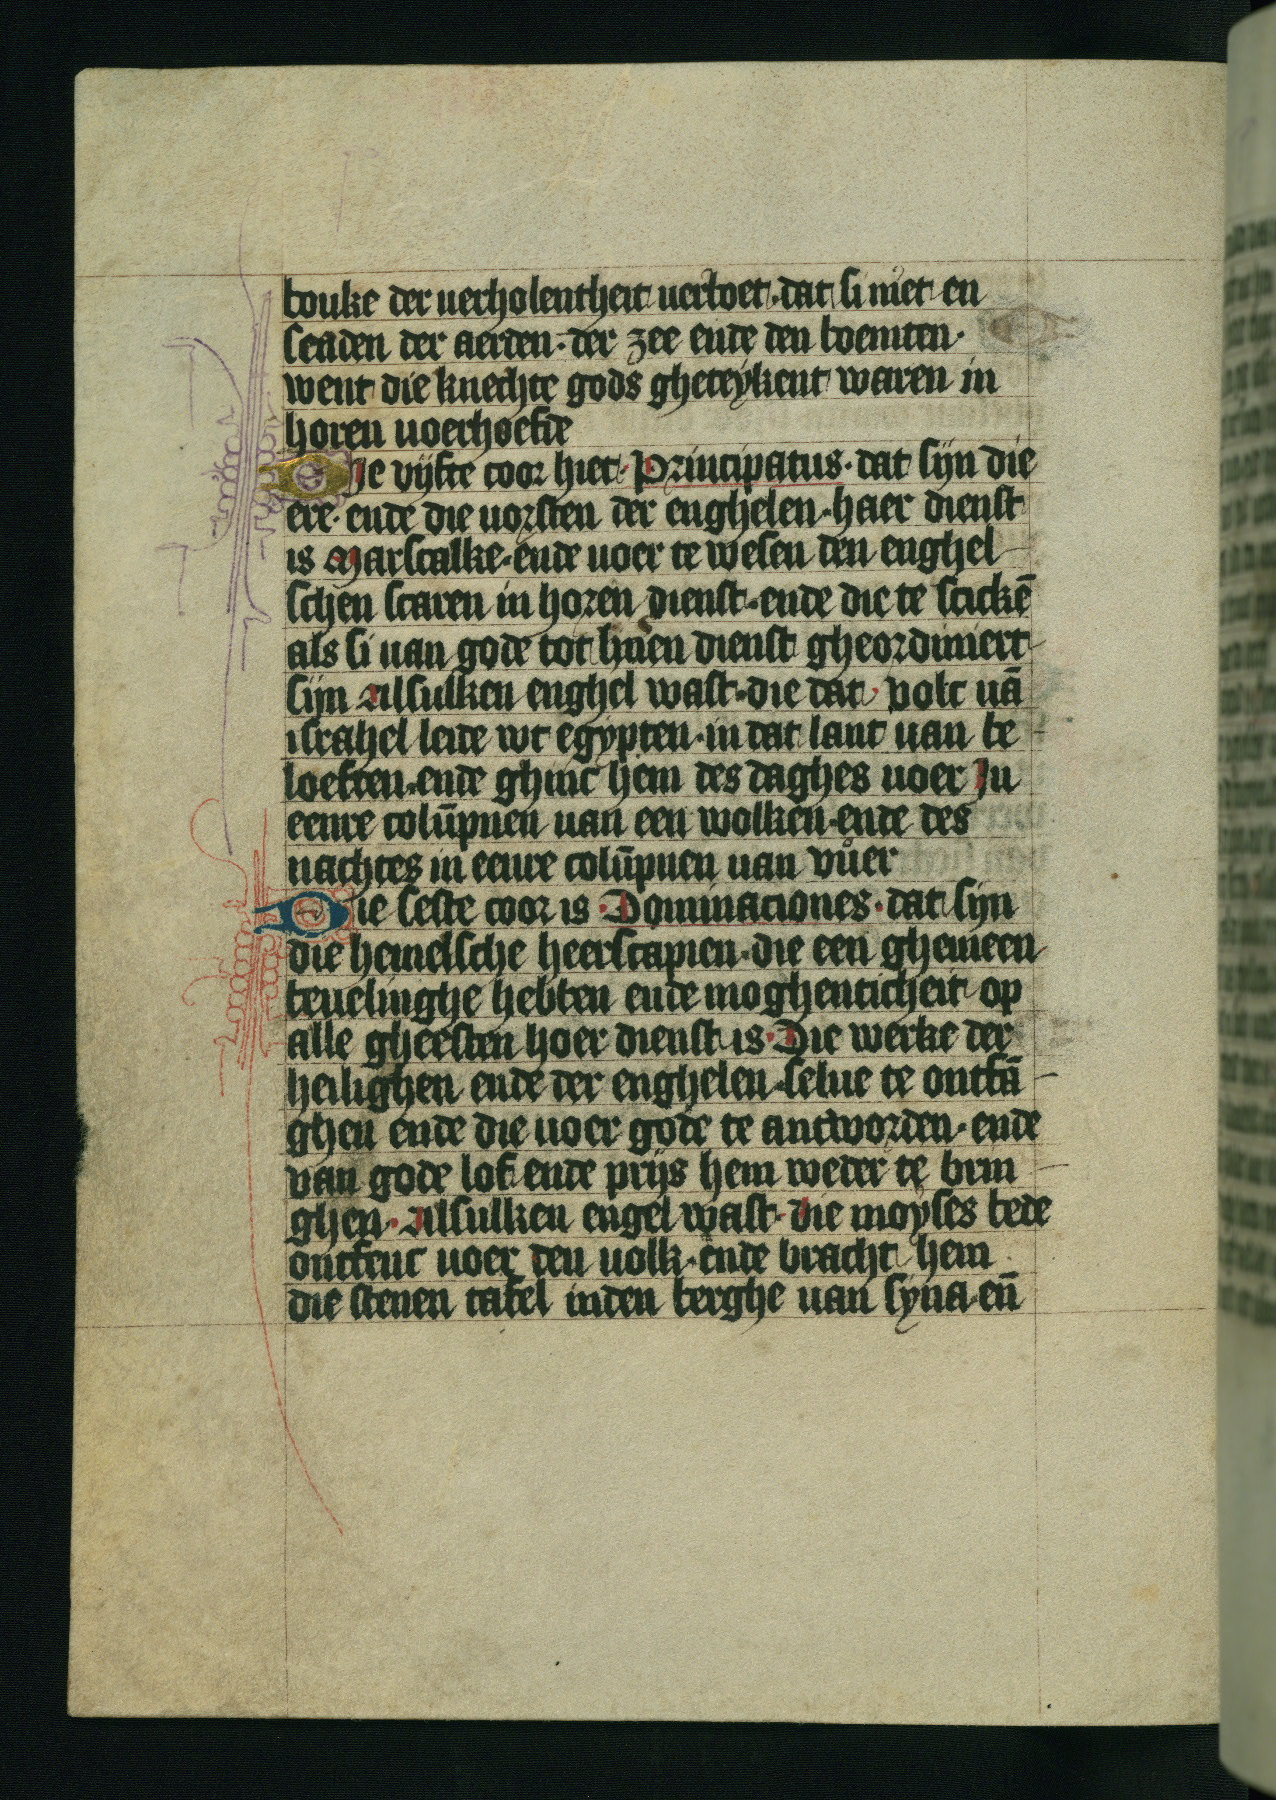 bouke der uerholentheit uerboet· dat si niet en
scaden der aerden· der zee ende den boemten·
went die knechte gods gheteykent waren in
horen uoerhoefde
Die vijfte coor hiet· Principatus· dat sijn die
ere· ende die uorsten der enghelen· haer dienst
is Marscalke· ende uoer te wesen den enghel
schen scaren in horen dienst· ende die te scickē
als si uan gode tot hnen dienst gheordiniert
sijn Alsulken enghel wast· die dat· volc uā
israhel leide wt egypten· in dat lant uan be
loeften· ende ghinc hem des daghes uoer In
eenre colūpnen uan een wolken· ende des
nachtes in eenre colūpnen uan vuer
Die seste coor is· Dominaciones· dat sijn
die hemelsche heerscapien· die een ghemeen
beuelinghe hebben ende moghenticheit op
alle gheesten hoer dienst is· Die werke der
heilighen ende der enghelen selue te ontfā
ghen ende die uoer gode te antworden· ende
van gode lof ende prijs hem weder te brin
ghen· Alsulken engel wast· die moyses bede
ontfenc uoer den uolk· ende bracht hem
die stenen tafel inden berghe uan syna· en̄